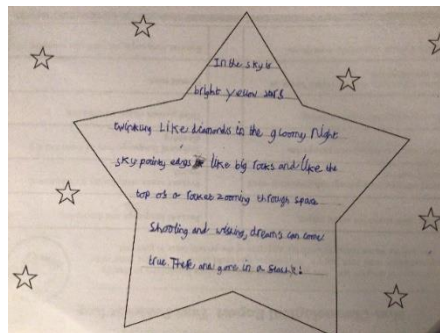 In the sky is
bright yellow stars
twinkling Like diamonds in the gloomy night
sky pointy edges like big rocks and like the
top of a rocket zooming through space
Shooting and wishing, dreams can come
true. There and gone in a